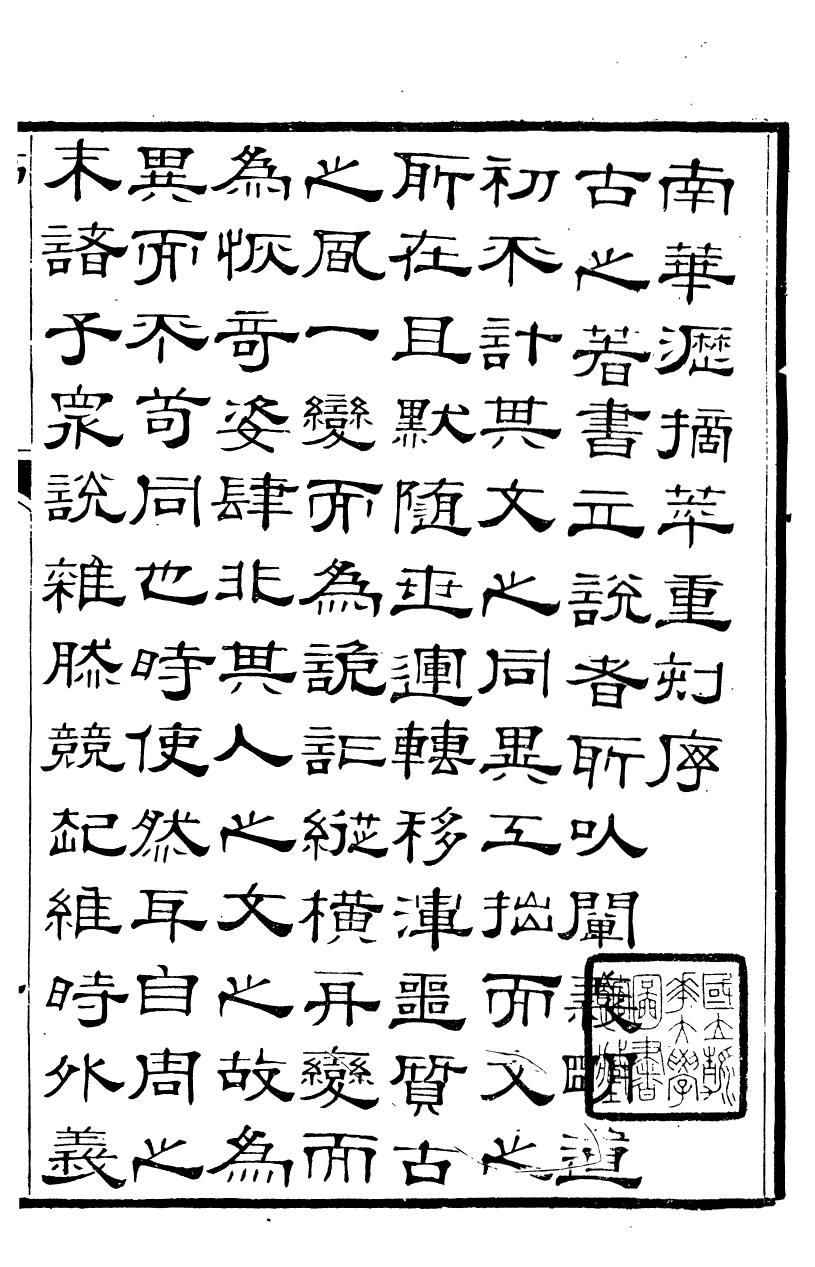 南華瀝摘萃重刻序
古之著書立說者所以闡義明道
初不計其文之同異工拙而文之
所在且默隨世運轉移渾噩質古
之風一變而為詭誕縱橫再變而
為恢奇姿肆非其人之文之故為
異而不苟同也時使然耳自周之
末諸子眾說雜競起維時外義
國立清
華大學
圖書
館藏